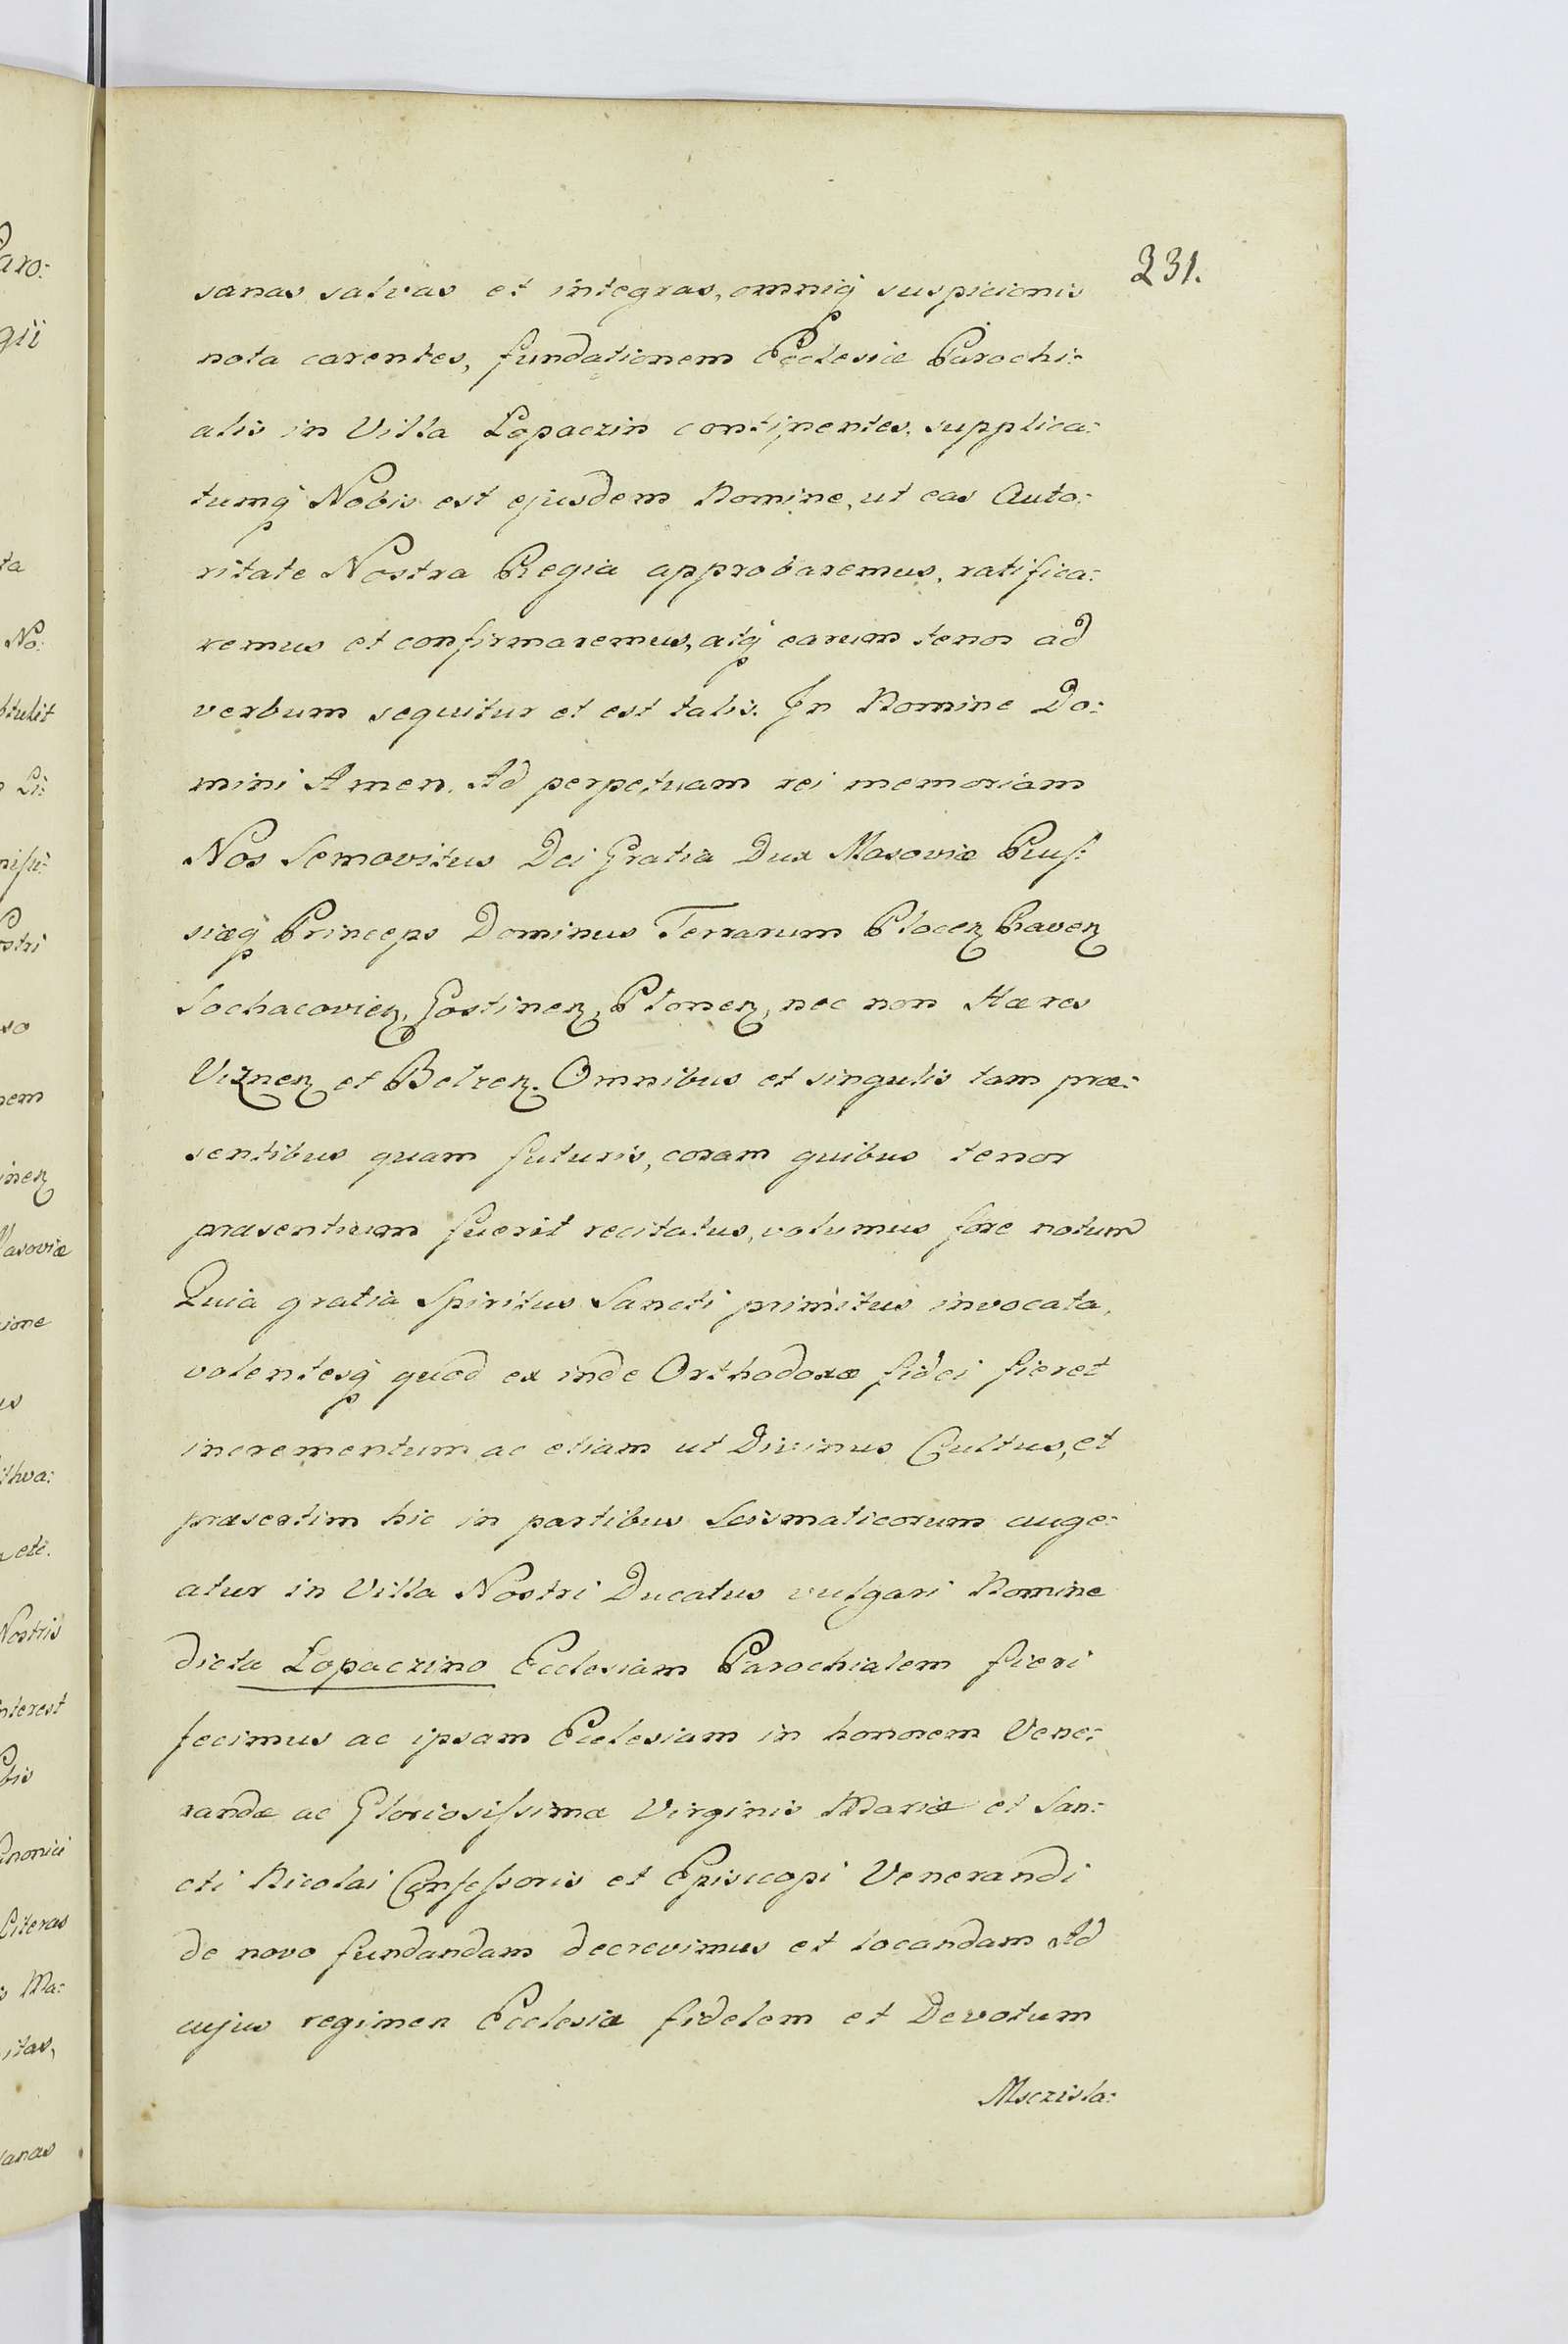 231.
sanas salvas et integras, omniq suspicionis
nota carentes, fundationem Ecclesiæ Parochi:
alis in Villa Lopaczin continentes. supplica:
tumq Nobis est ejusdem Nomine, ut eas Auto:
ritate Nostra Regia approbaremus, ratifica:
remus et confirmaremus, atq earum tenor ad
verbum sequitur et est talis. In Nomine Do:
mini Amen. Ad perpetuam rei memoriam
Nos Semovitus Dei Gratia Dux Masoviæ Rus:
siæq Princeps Dominus Terrarum Plocen Raven
Sochacovien, Gostinen, Plonen, nec non Hæres
Viznen et Belzen. Omnibus et singulis tam præ:
sentibus quam futuris, coram quibus tenor
præsentium fuerit recitatus, volumus fore notum
Quia gratia Spiritus Sancti primitus invocata,
volentesq quod ex inde Orthodoxæ fidei fieret
incrementum ac etiam ut Divinus Cultus, et
præsertim hic in partibus Scismaticorum auge:
atur in Villa Nostri Ducatus vulgari Nomine
dicta Lopaczino Ecclesiam Parochialem fieri
fecimus ac ipsam Ecclesiam in honorem Vene:
randæ ac Gloriosissimæ Virginis Mariæ et San:
cti Nicolai Confessoris et Episcopi Venerandi
de novo fundandam decrevimus et locandam Ad
cujus regimen Ecclesiæ fidelem et Devotum
Msczisla: